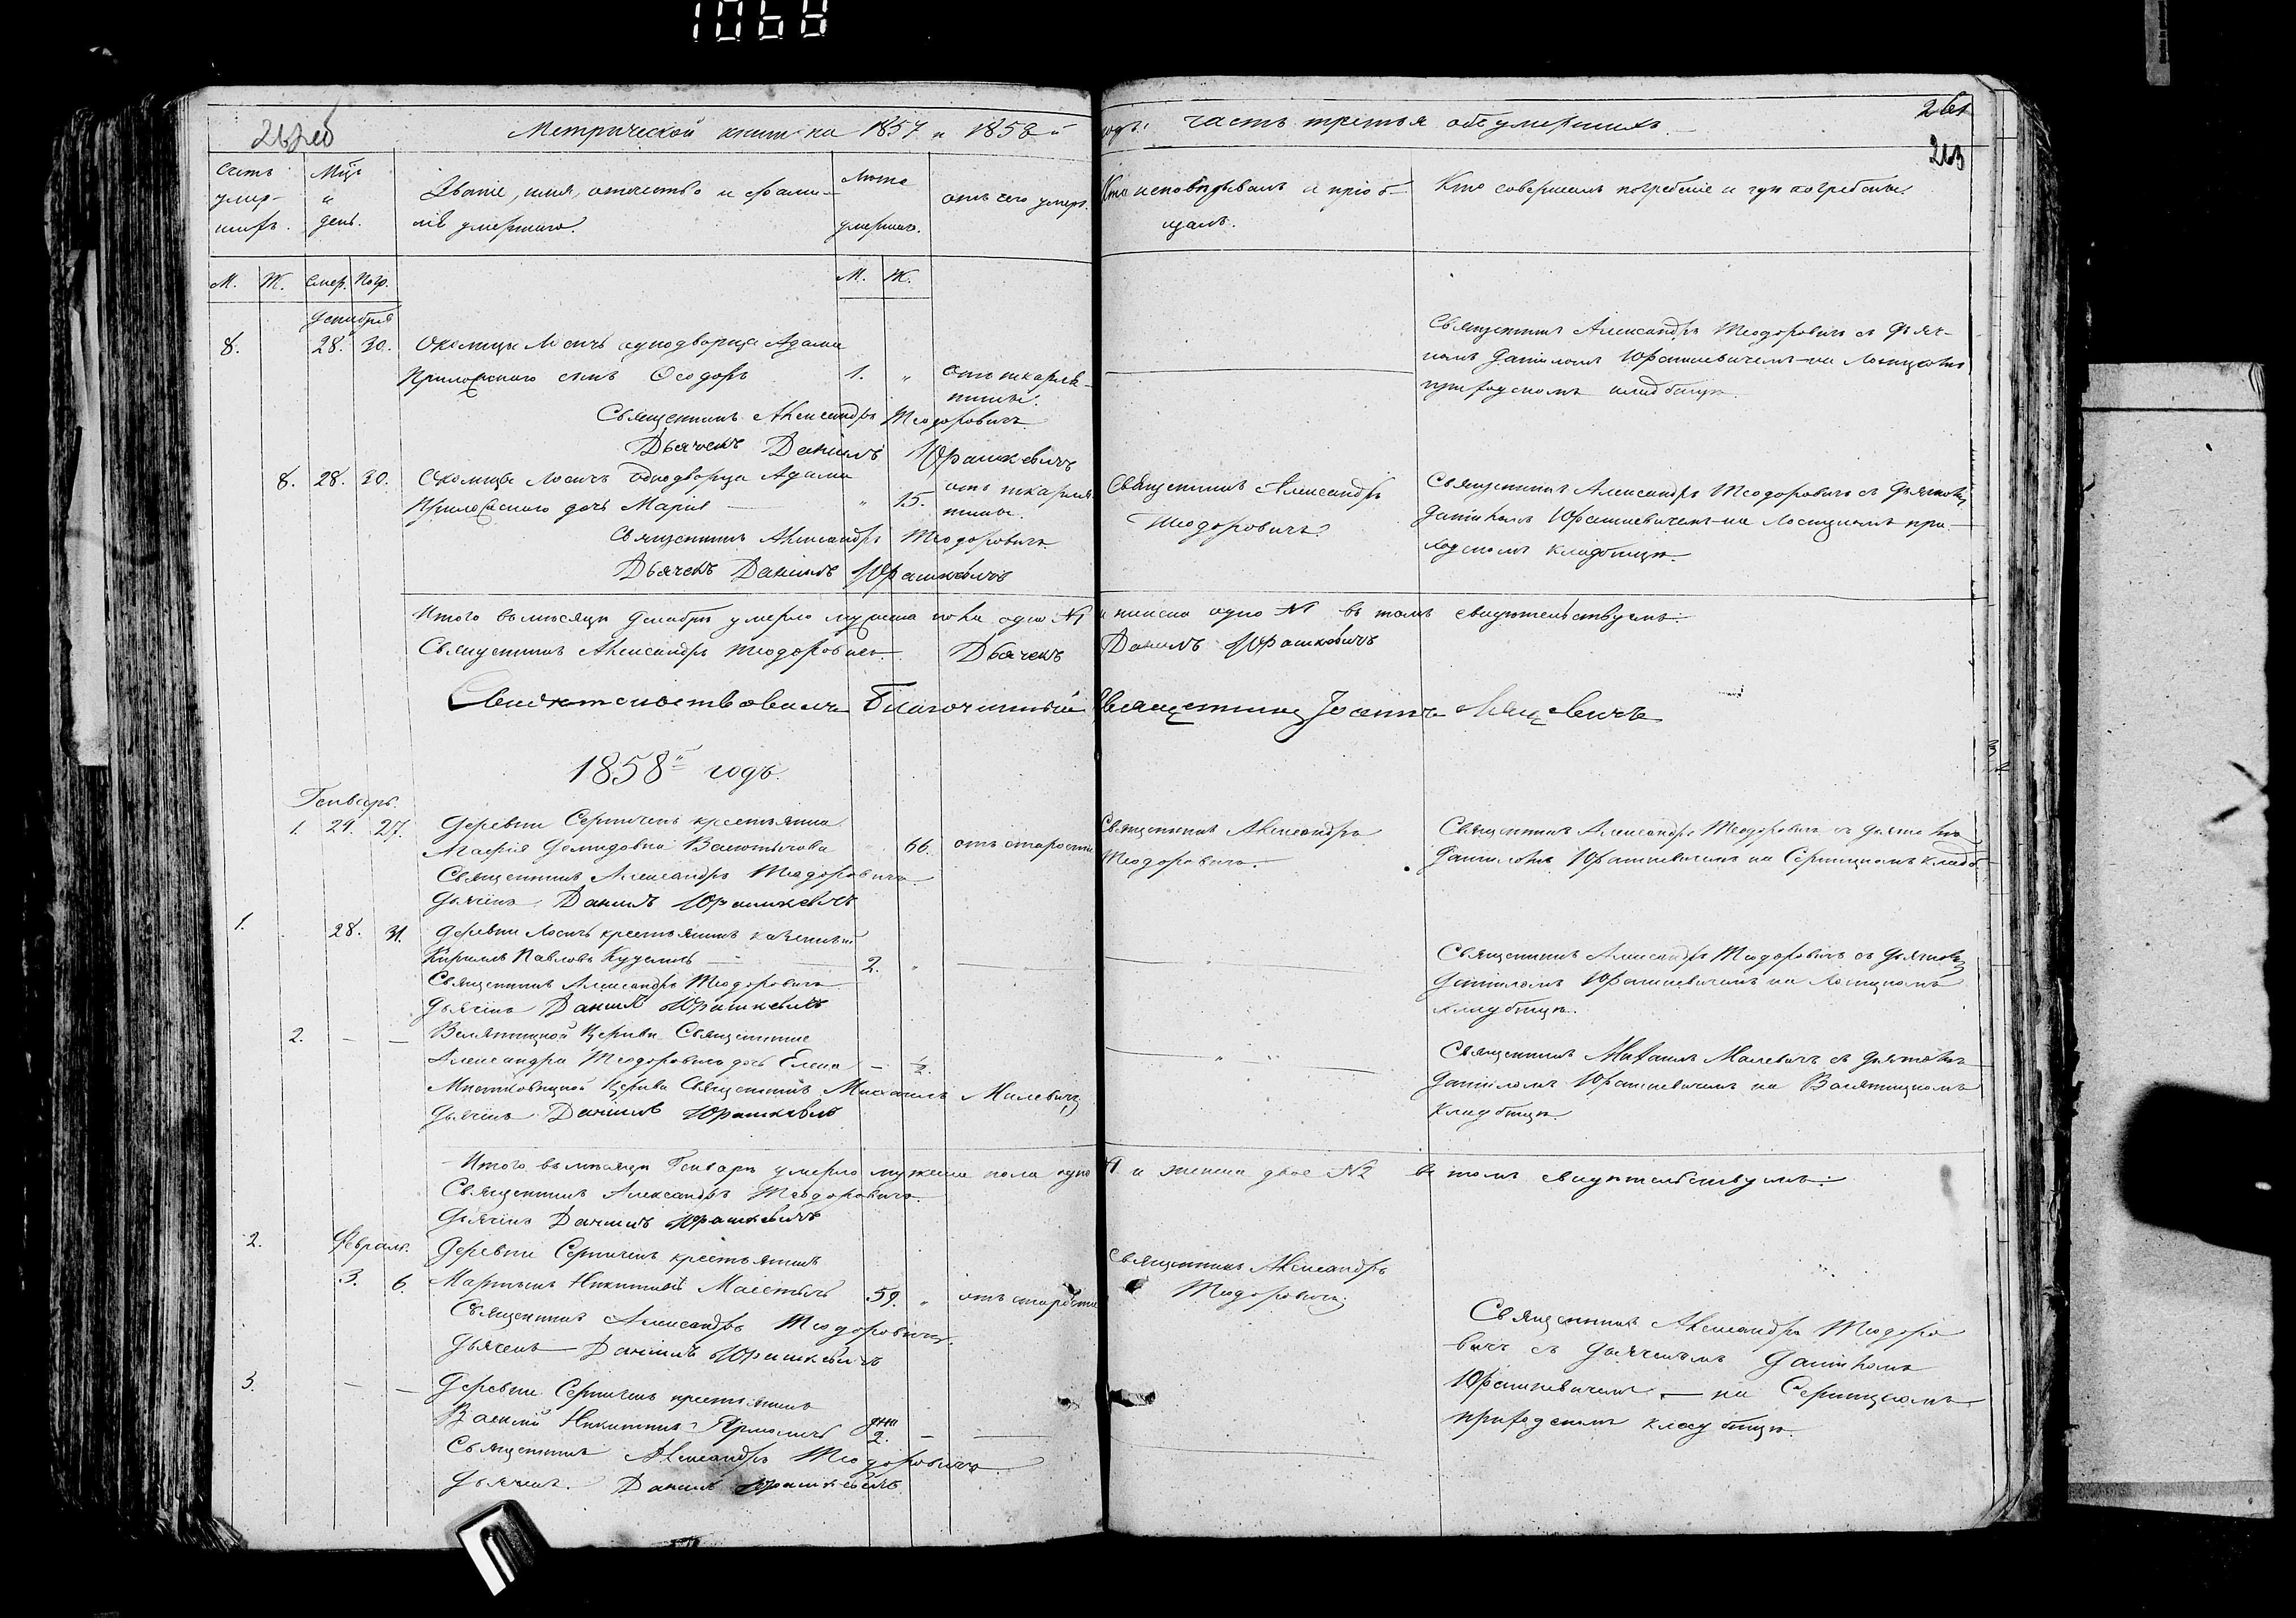 1068
Метрической книги на 1857 и 1858 й
годъ: часть третья объ умершихъ.
261
263
Счетъ умер-шихъ.
Мць и день.
Званіе, имя, отчество и фами-
лія умершаго.
Лета умершаго.
отъ чего умеръ.
Кто исповѣдывалъ и пріоб-
щалъ.
Кто совершалъ погребеніе и гдѣ погребены
М. Ж. Смер. Погр. М. Ж.
Декабрь
8. 28. 30. Околицы Лосичъ однодворца Адама
сынъ Ѳеодоръ 1. „ отъ шкарля-
тины.
Священникъ Александръ Теодоровичъ
Дьячекъ Данилъ Юрашкевичъ
Священникъ Александръ Теодоровичъ съ дьяч-
комъ Даніиломъ Юрашкевичемъ на Лосицкомъ
приходскомъ кладбищѣ.
8. 28. 30. Околицы Лосичъ однодворца Адама
дочь Марія „ 15. отъ шкарля-
тины.
Священникъ Александръ Теодоровичъ
Дьячекъ Данилъ Юрашкевичъ
Священникъ Александръ
Теодоровичъ
Священникъ Александръ Теодоровичъ съ дьячкомъ
Даніиломъ Юрашкевичемъ на Лосицкомъ при-
ходскомъ кладбищѣ.
Итого въ мѣсяцѣ Декабрѣ умерло мужеска пола одно №1 и женска одно №1 въ томъ свидѣтельствуемъ:
Священникъ Александръ Теодоровичъ. Дьячекъ Данилъ Юрашкевичъ
Свидѣтельствовалъ Благочинный Священникъ Іоаннъ
1858й годъ.
Генварь.
1. 24. 27. Деревни Серничекъ крестьянка
Марія Демидовна 66. отъ старости
Священникъ Александръ Теодоровичъ
Дьячекъ Данилъ Юрашкевичъ
Священникъ Александръ
Теодоровичъ.
Священникъ Александръ Теодоровичъ съ дьячкомъ
Даніиломъ Юрашкевичемъ на кладб-
1. 28. 31. Деревни Лосичъ крестьянинъ казенный
Кириллъ Павловъ 2. „
Священникъ Александръ Теодоровичъ
Дьячекъ Данилъ Юрашкевичъ
Священникъ Александръ Теодоровичъ съ дьячкомъ
Даніиломъ Юрашкевичемъ на Лосицкомъ
кладбищѣ.
2. — — Велятицкой Церкви Священника
Александра Теодоровича дочь Елена — ½.
Церкви Священникъ Михаилъ Малевичъ
Дьячекъ Данилъ Юрашкевичъ
Священникъ Михаилъ Малевичъ съ дьячкомъ
Даніиломъ Юрашкевичемъ на Велятицкомъ
кладбищѣ.
Итого въ мѣсяцѣ Генварѣ умерло мужеска пола одно №1 и женска двое №2 въ томъ свидѣтельствуемъ:
Священникъ Александръ Теодоровичъ.
Дьячекъ Данилъ Юрашкевичъ
2. Февраль. Деревни Серничекъ крестьянинъ
3. 6. Мартынъ Никитинъ 59. „ отъ старости
Священникъ Александръ Теодоровичъ.
Дьячекъ Данилъ Юрашкевичъ
Священникъ Александръ
Теодоровичъ
Священникъ Александръ Теодоро
вичъ съ дьячкомъ Даніиломъ
Юрашкевичемъ — на
приходскомъ кладбищѣ.
3. — — Деревни Серничекъ крестьянинъ
Василій Никитинъ дни 2. —
Священникъ Александръ Теодоровичъ
Дьячекъ. Данилъ Юрашкевичъ